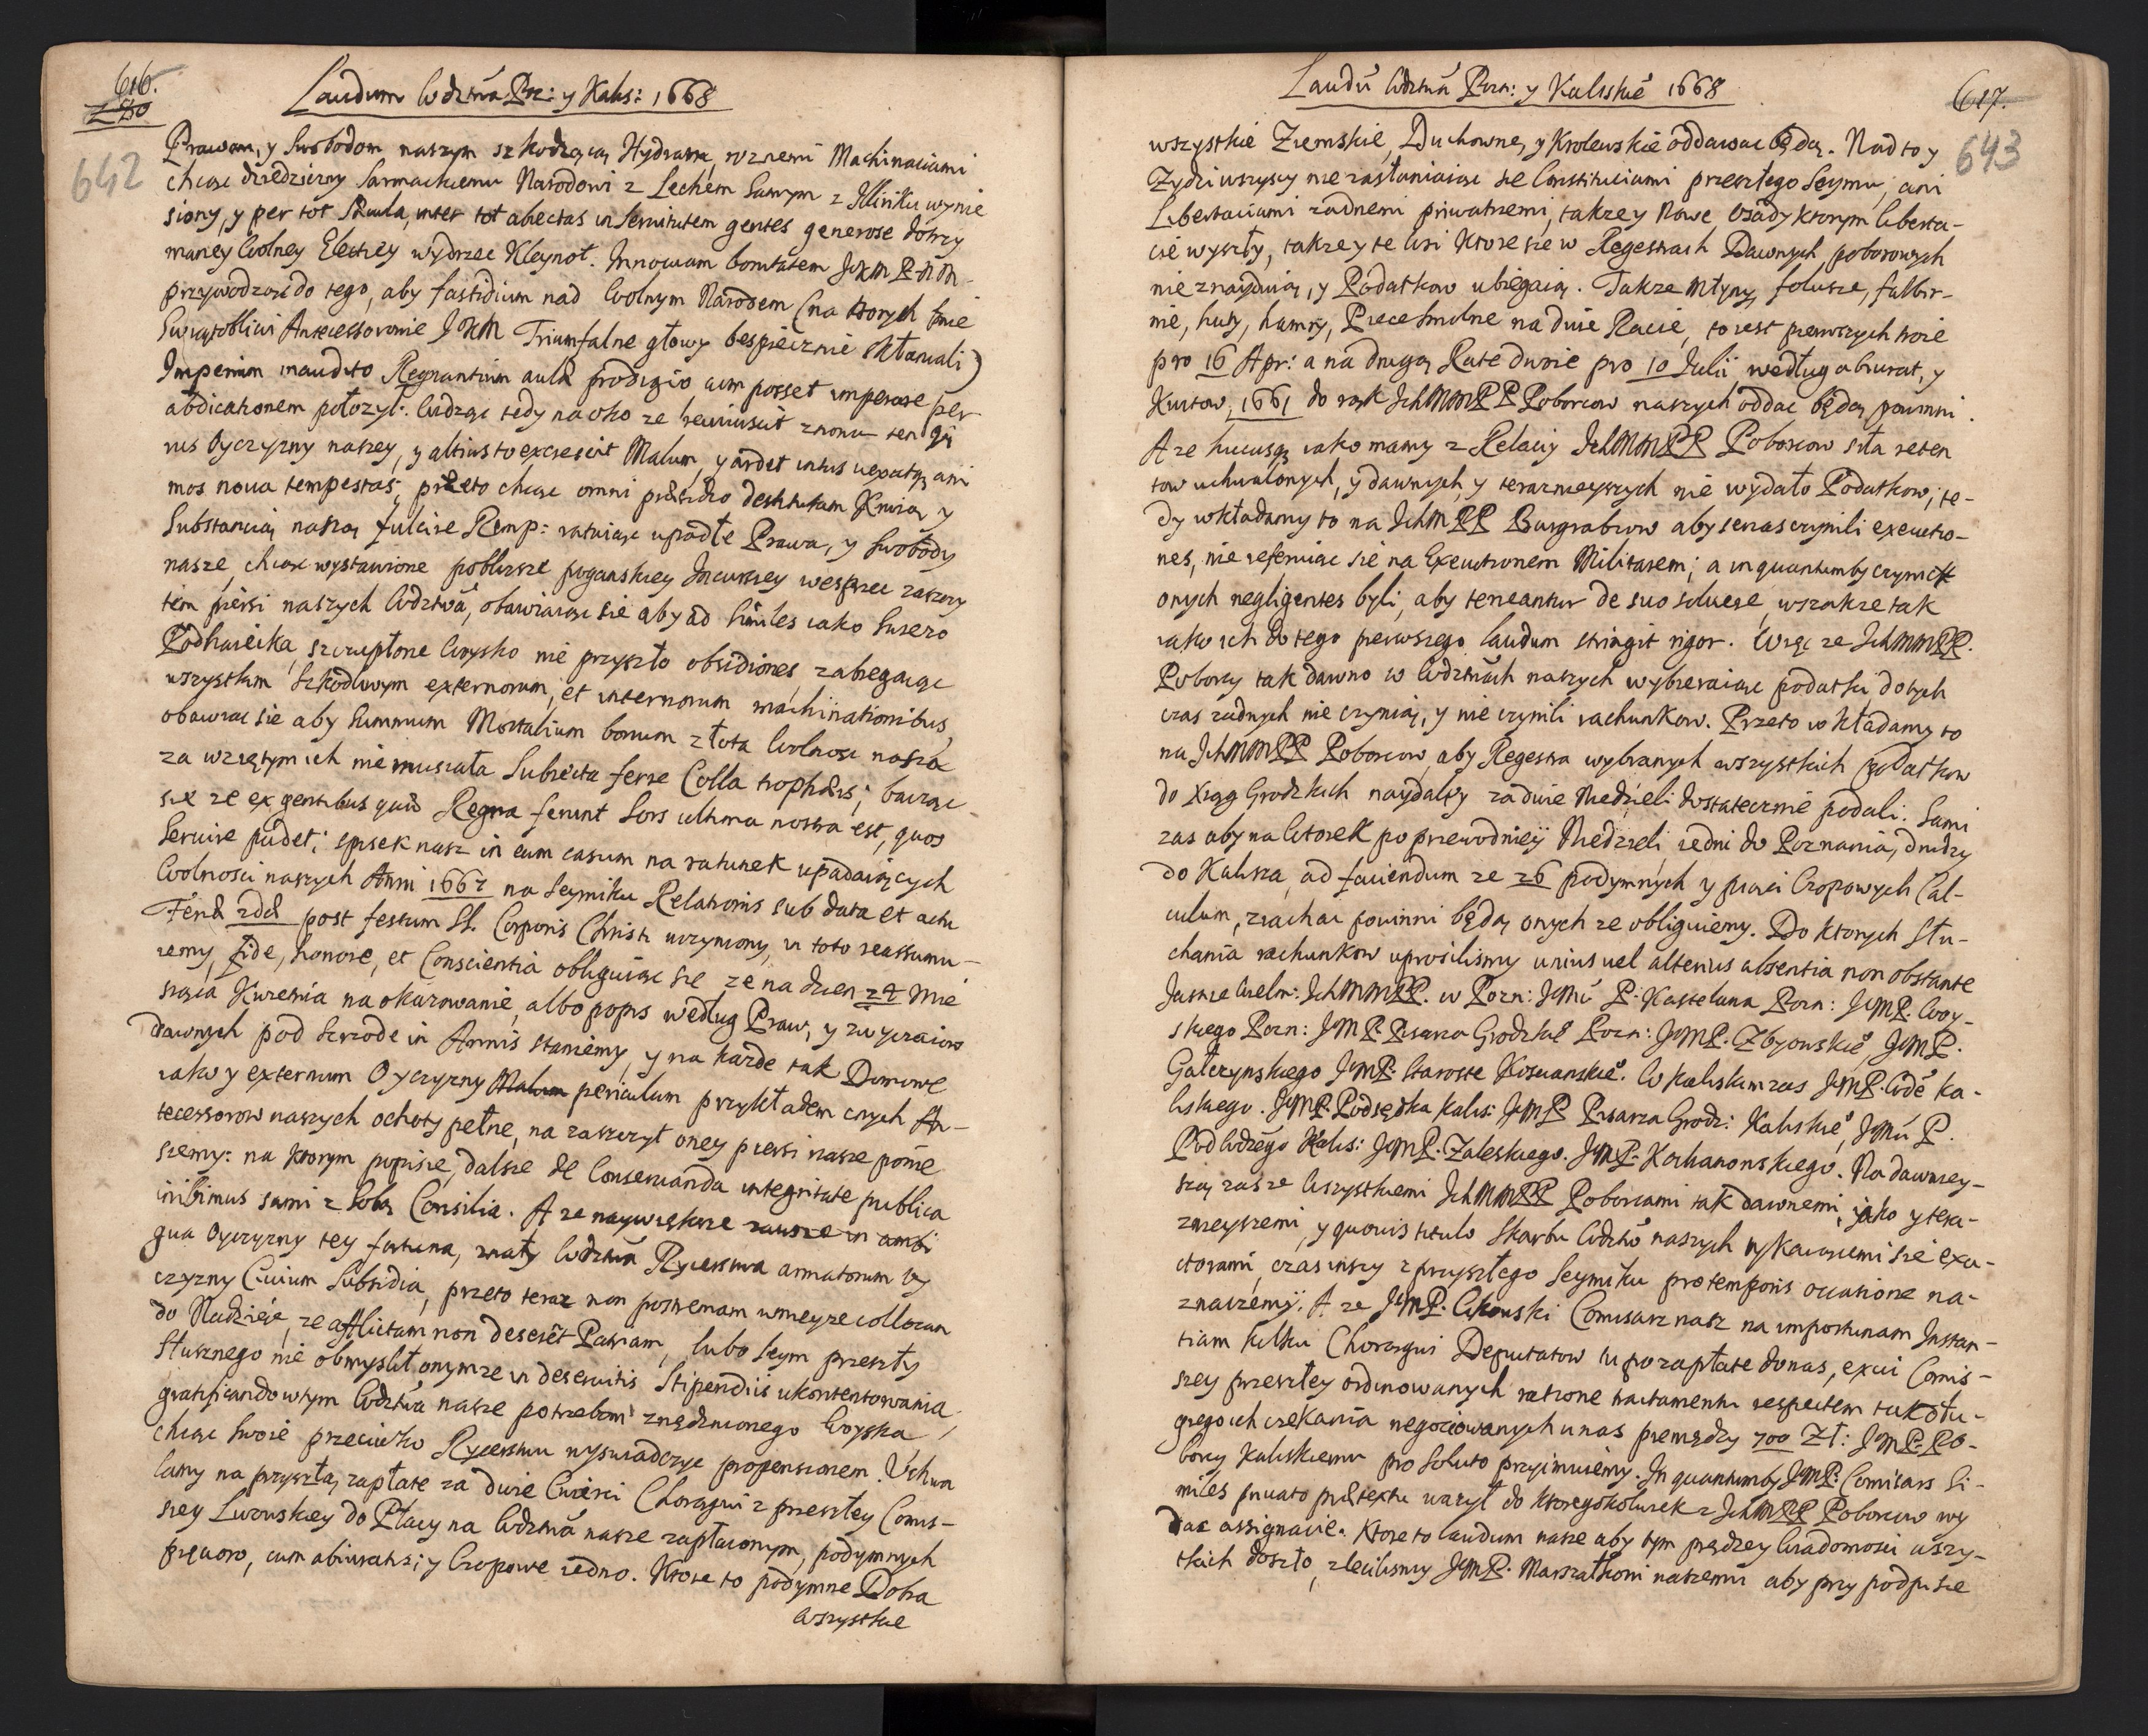 616.
642
Laudum Wdztwa Poz: y Kalis: 1668
Prawom, y Swobodom naszym szkodzącą Hydramą roznemi Machinaciami
chcąc dziedziczny Sarmackiemu Narodowi z Lechem Samym z Illiriku wynie
siony, y per tot Sæcula, inter tot abiectas in Servitutem gentes generose dotrzy
maney Wolney Elekcyey wydrzec Kleynot. Innatam bonitatem JKM P. N M.
przywodząc do tego, aby fastidium nad Wolnym Narodem (na ktorych łonie
Swiątobliwi Antecessorowie JKM Triumfalne głowy bespiecznie skłaniali)
Imperium inaudito Regnantium aulæ prodigio cum posset imperare per
abdicationem położył. Widząc tedy na oko ze reviviscit znowu ten gi
rus Oyczyzny naszey, y altius to excrescit Malum, y ardet intus vexatq ani
mos nova tempestas; przeto chcąc omni præsidio destitutam Krwią y
Substancią naszą fulcire Remp: ratuiąc upadłe Prawa, y Swobody
nasze, chcąc wystawione pobliższe poganskiey Incursiey wesprzec zaszczy
tem piersi naszych Wdztwa, obawiaiąc sie aby ad similes iako Susero
Podhaiecka, szczupłone Woysko nie przyszło obsidiones, zabiegaiąc
wszystkim szkodliwym externorum, et internorum machinationibus,
obawiaiąc sie aby Summum Mortalium bonum złota Wolnosc nasza
za wzietym ich nie musiała Subiecta ferre Colla trophæis; bacząc
sie ze ex gentibus quæ Regna ferunt Sors ultima nostra est, quos
Servire pudet; spisek nasz in eum casum na ratunek upadaiących
Wolnosci naszych Anni 1667 na Seymiku Relationis sub data et actu
Feriæ 2dæ post festum SS. Corporis Christi uczyniony, in toto reassumu-
iemy, fide, honore, et Conscientia obliguiąc sie ze na dzien 24 Mie
siąca Kwietnia na okazowanie, albo popis według Praw, y zwyczaiow
dawnych pod Szrode in Armis staniemy, y na kazde tak Domowe
iako y externum Oyczyzny Malum periculum przykładem cnych An-
tecessorow naszych ochoty pełne, na zaszczyt oney piersi nasze ponie
siemy: na ktorym popisie, dalsze de Conservanda integritate publica
inibimus sami z Sobą Consilia. A ze naywiększe zawsze in ambi
gua Oyczyzny tey fortuna, znały Wdztwa Rycerstwa armatorum Oy
czyzny Civium Subsidia, przeto teraz non postremam w nieyze collocan
do Nadzieie, ze afflictam non deseret Patriam, lubo Seym przeszły
słusznego nie obmyslił onymze in deservitis Stipendiis ukontentowania,
gratificando w tym Wdztwa nasze potrzebom znędznionego Woyska,
chcąc swoie przeciwko Rycerstwu wyswiadczyc propensionem. Uchwa
lamy na przyszłą zapłate za dwie Cwierci Chorągwi z przeszłey Comis-
siey Lwowskiey do Płacy na Wdztwa nasze zapłaconym, podymnych
pięcioro, cum abiuratis; y Czopowe iedno. Ktore to podymne Dobra
wszystkie
617.
643
Laudū Wdztwā Pozn: y Kaliskie 1668
wszystkie Ziemskie, Duchowne, y Krolewskie oddawac będą. Nad to y
Zydzi wszyscy nie zasłaniaiąc sie Constituciami przeszłego Seymu, ani
Libertaciami zadnemi priwatnemi, takze y Nowe Osady ktorym liberta-
cie wyszły, takze y te Wsi ktore sie w Regestrach Dawnych poborowych
nie znayduią, y Podatkow ubiegaią. Takze Młyny, folusze, falbir-
nie, huty, hamry, Piece Smolne na dwie Racie, to iest pierwszych troie
pro 16 Apr: a na drugą Rate dwoie pro 10 Julii według abiurat, y
Kwitow, 1661 do rąk IchMMPP Poborcow naszych oddac będą powinni.
A ze hucusq iako mamy z Relacij IchMMPP Poborcow siła reten
tow uchwalonych, y dawnych, y teraznieyszych nie wydało Podatkow; te-
dy wkładamy to na IchMPP Burgrabiow aby zaraz czynili executio-
nes, nie referuiąc sie na Executionem Militarem; a in quantum by czynic
onych negligentes byli, aby teneantur de suo solvere, wszakze tak
iako ich do tego pierwszego laudum stringit rigor. Więc ze IchMMPP.
Poborcy tak dawno w Wdztwach naszych wybieraiąc podatki dotych
czas zadnych nie czynią, y nie czynili rachunkow. Przeto wkładamy to
na IchMMPP Poborcow, aby Regestra wybranych wszystkich podatkow
do Xiąg Grodzkich naydaley za dwie Niedzieli dostatecznie podali: Sami
zas aby na Wtorek po przewodniey Niedzieli iedni do Poznania, drudzy
do Kalisza, ad faciendum ze 26 podymnych y piąci Czopowych Cal-
culum, ziachac powinni będą onych ze obliguiemy. Do ktorych słu-
chania rachunkow uprosilismy unius vel alterius absentia non obstante
Jasnie Wielm: IchMMPP. w Pozn: JMci P. Kasztelana Pozn: JMP. Woy-
skiego Pozn: JMP. Pisarza Grodzkie Pozn: JMP. Zbyowskie JMP.
Gałczynskiego JMP. Staroste Koscianskie. W Kaliskim zas JMP. Wde Ka-
liskiego. JMP. Podsędka Kalis: JMP Pisarza Grodz: Kaliskie, JMci P.
Podwdzego Kalis: JMP. Zaleskiego. JMP. Kochanowskiego. Na dawniey-
szą zas ze Wszystkiemi IchMMPP Poborcami tak dawnemi, iako y tera-
znieyszemi, y quovis titulo Skarbu Wdztw naszych tykaiącemi sie exa-
ctorami, czas inszy z przyszłego Seymiku pro temporis occasione na-
znaczemy. A ze JMP. Cikowski Comisarz nasz na importunam Instan-
tiam kilku Chorągwi Deputatow tu po zapłate do nas, ex vi Comis-
siey przeszłey ordinowanych ratione tractamentu respectem tak dłu-
giego ich czekania negociowanych u nas pieniędzy 700 Zł: JMP. Po-
borcy Kaliskiemu pro soluto przyimuiemy. In quantum by JMP. Comisars Si-
miles privato prætextu ważył do ktoregokolwiek z IchMPP Poborcow wy
dac assignacie. Ktore to laudum nasze aby tym prędzey Wiadomosci wszy-
tkich doszło, zlecilismy JMP. Marszałkowi naszemu aby przy podpisie